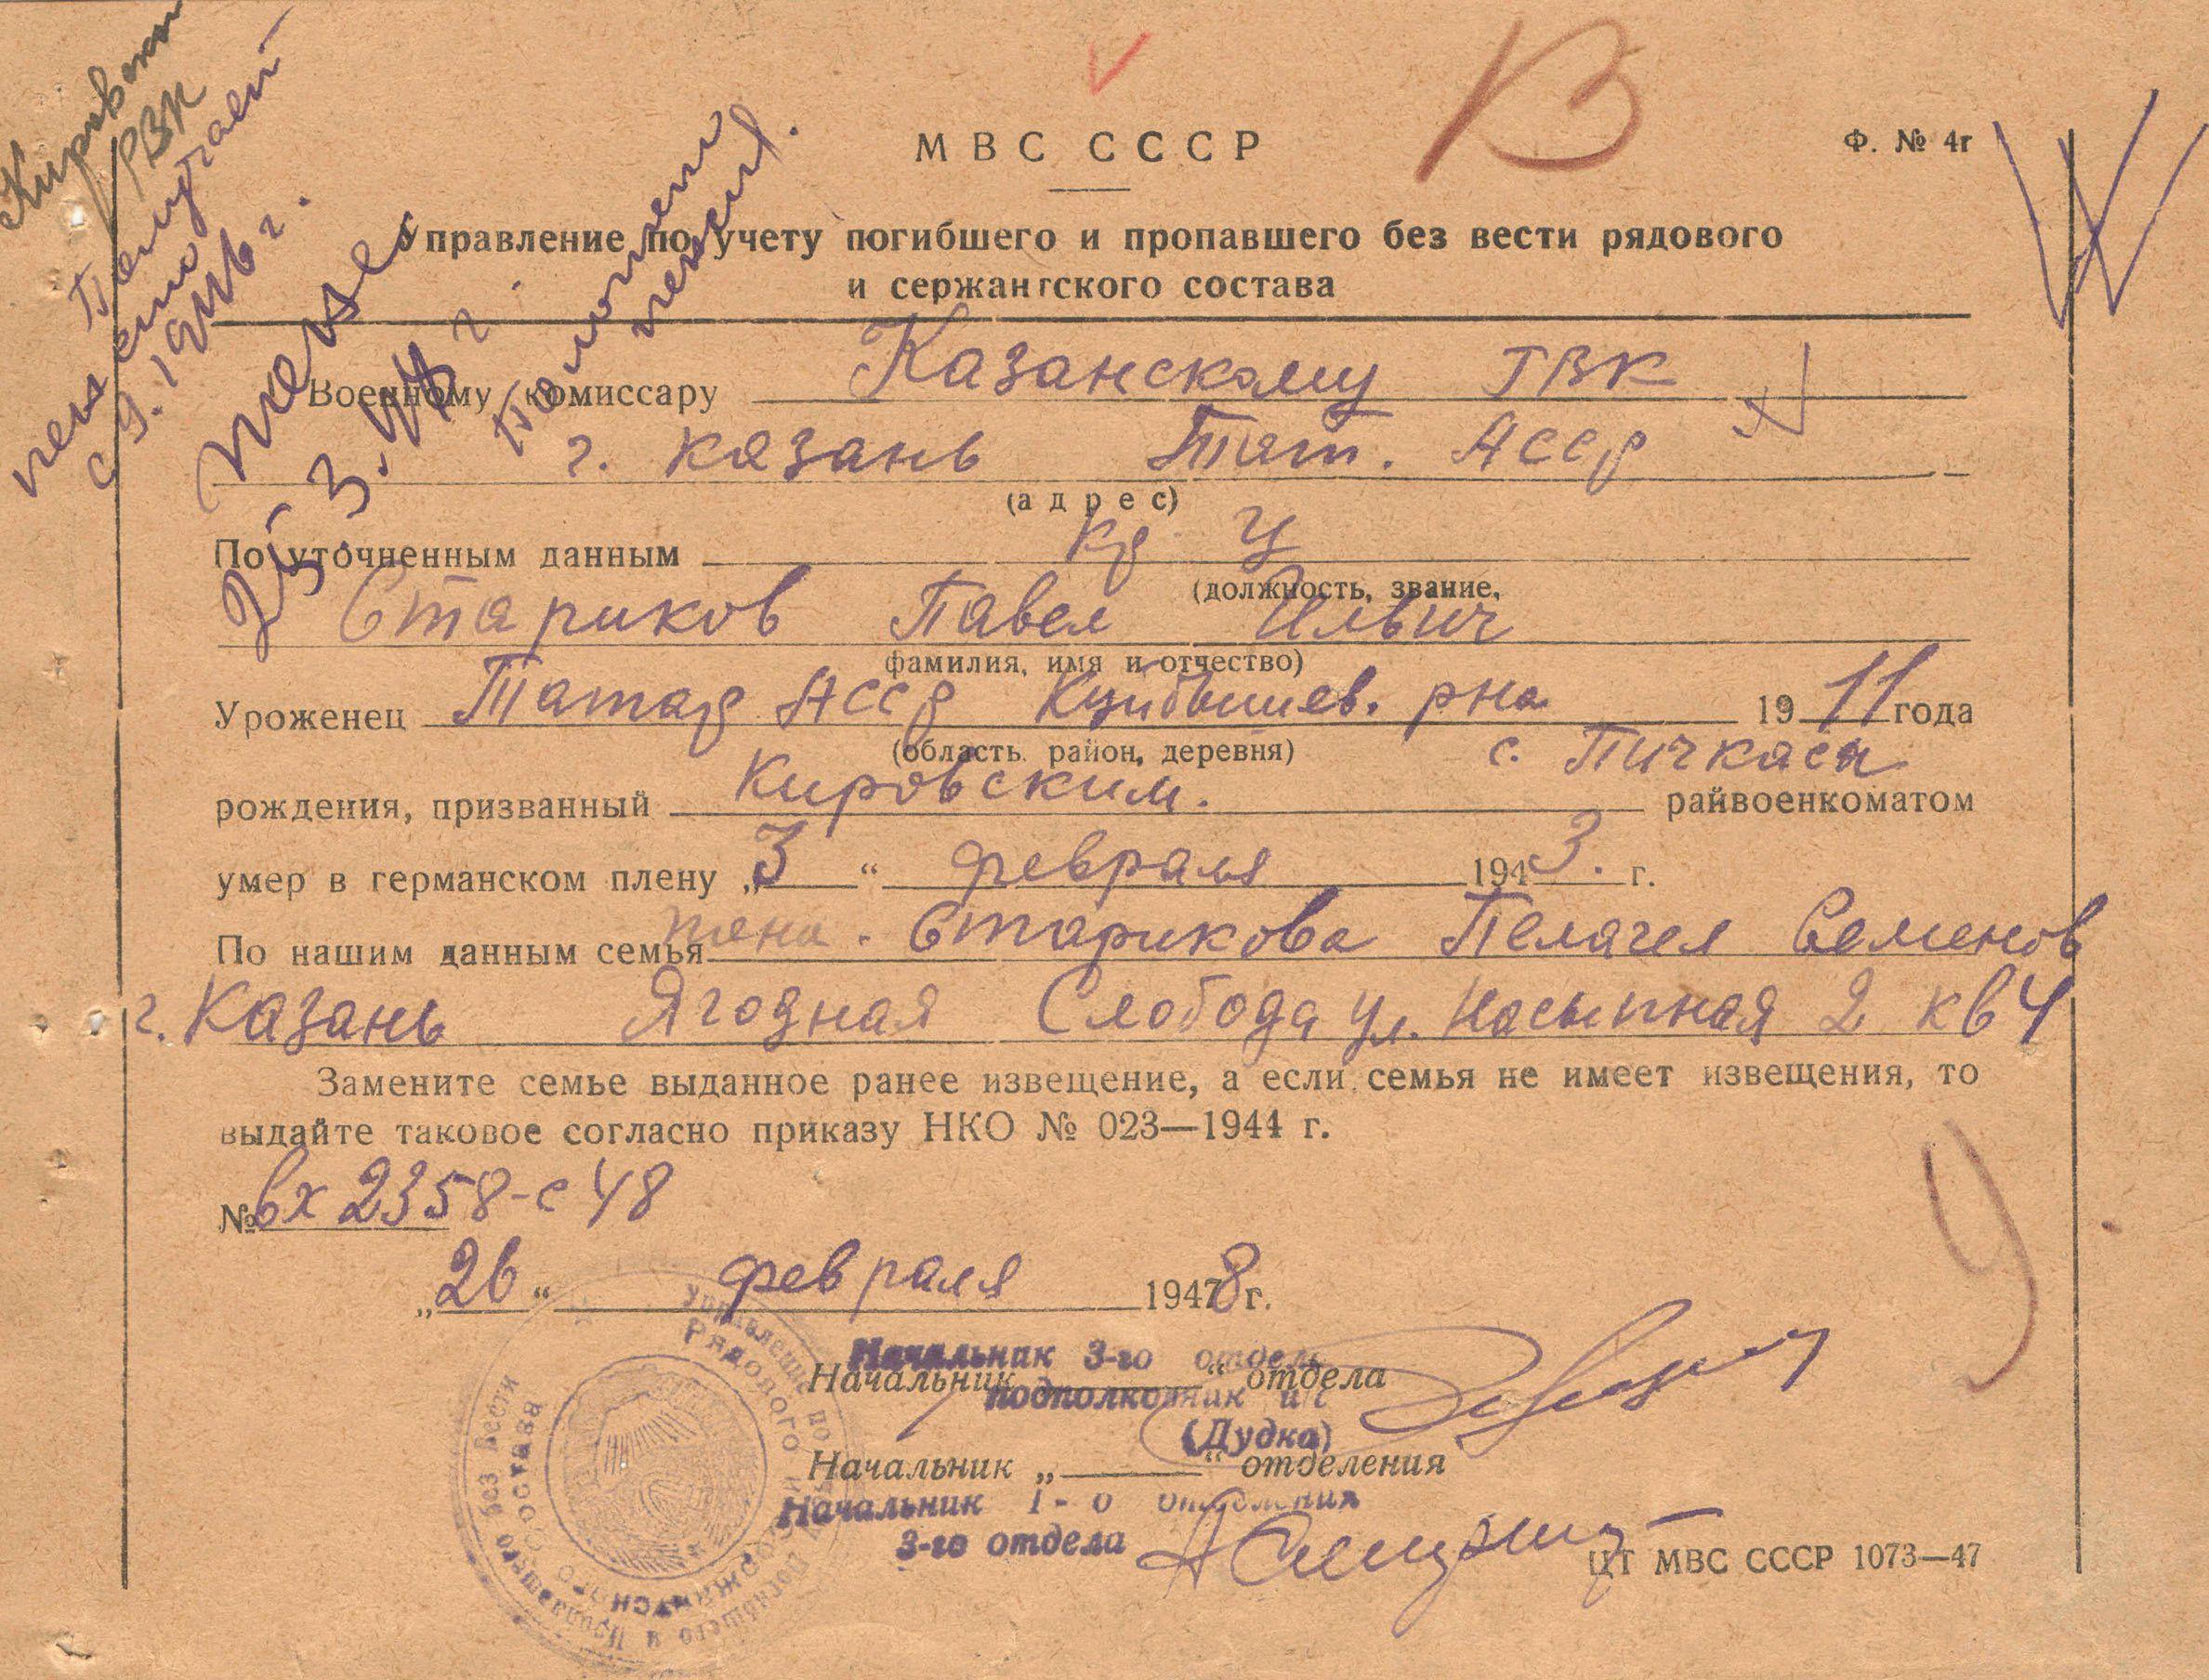 Кировский
РВК
Получает
пенсию
с 9. 1946 г.
жене
25.3.48 г.
Получает
пенсию.
В
МВС СССР
Ф. № 4г
Управление по учету погибшего и пропавшего без вести рядового
и сержантского состава
Военному комиссару Казанскому ГВК
г. Казань Тат. АССР
(адрес)
По уточненным данным кр-ц
(должность, звание,
Стариков Павел Ильич
фамилия, имя и отчество)
Уроженец Татар АССР Куйбышев. рна 1911 года
(область, район, деревня) с. Пичкасы
рождения, призванный Кировским. райвоенкоматом
умер в германском плену „3“ февраля 1943. г.
По нашим данным семья жена. Старикова Пелагея Семенов
г. Казань Ягодная Слобода ул. Насыпная 2 кв 4
Замените семье выданное ранее извещение, а если семья не имеет извещения, то
выдайте таковое согласно приказу НКО № 023—1944 г.
№ вх 2358-с 48
„26“ февраля 19478 г.
Начальник 3-го отдела
Начальник „ “ отдела
подполковник и/с
(Дудка)
Начальник „ “ отделения
Начальник 1-о отделения
3-го отдела
ЦТ МВС СССР 1073—47
Управление по учету погибшего и пропавшего без вести
рядового и сержантского состава